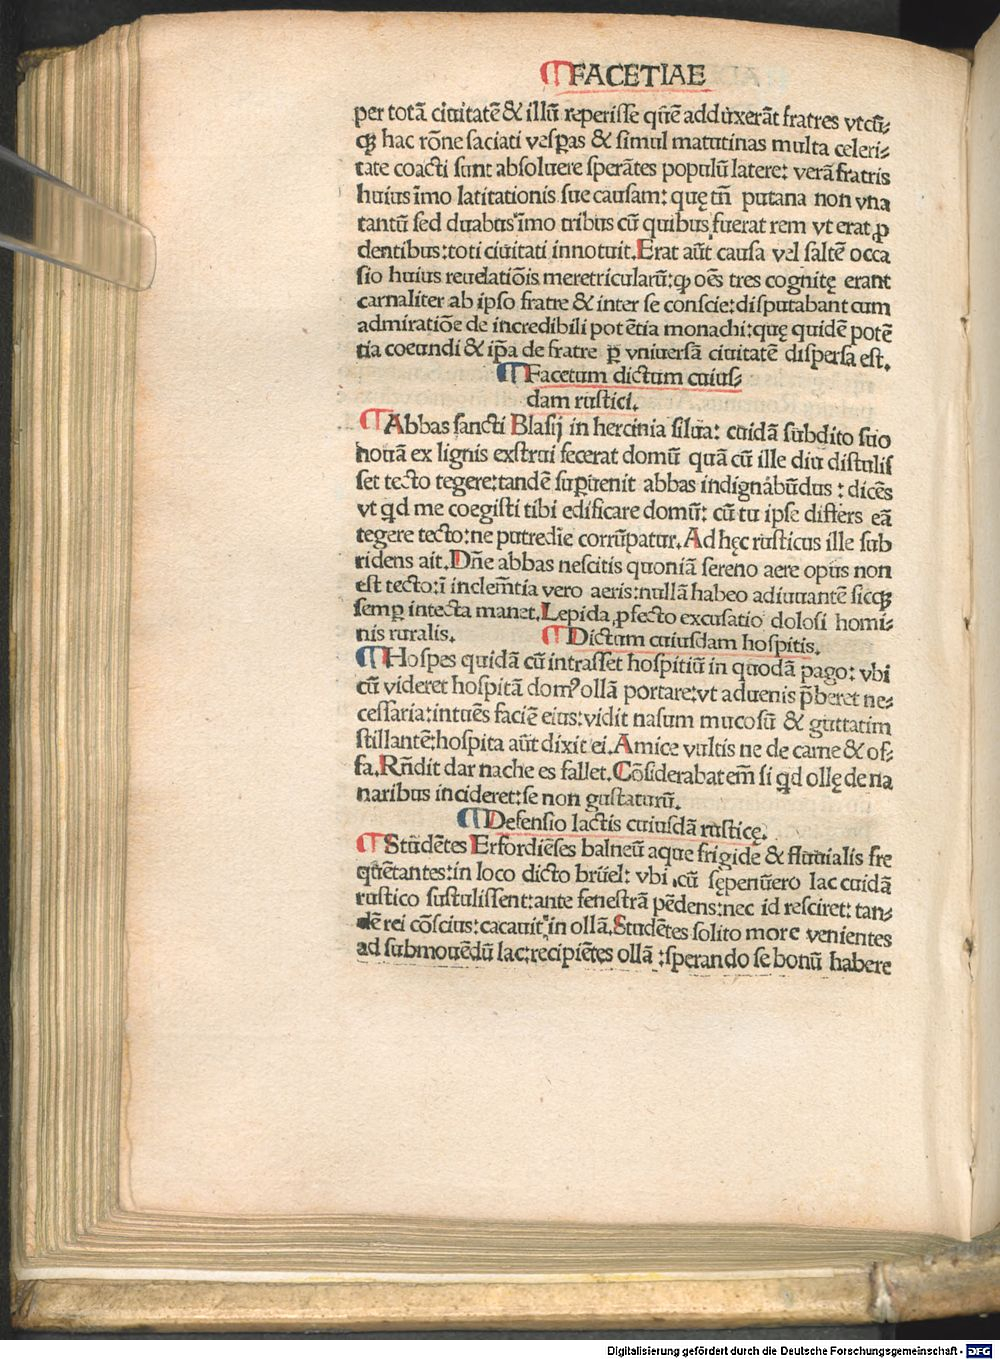 FACETIAE
per totā ciuitatē & illū reperisse quē adduxerāt fratres vtcū⸗
qꝫ hac rōne saciati vesꝑas & simul matutinas multa celeri⸗
tate coacti sunt absoluere sperātes populū latere: verā fratris
huius īmo latitationis sue causam: quę tn̄ putana non vna
tantū sed duabus īmo tribus cū quibus fuerat rem vt erat ꝓ
dentibus: toti ciuitati innotuit. Erat aūt causa vel saltē occa
sio huius reuelatiōis meretricularū: ꝙ oēs tres cognitę erant
carnaliter ab ipso fratre & inter se conscie: disputabant cum
admiratiōe de incredibili potētia monachi: quę quidē potē
tia coeundi & ip̄a de fratre ꝑ vniuersā ciuitatē dispersa est.
Facetum dictum cuius⸗
dam rustici.
Abbas sancti Blasij in hercinia silua: cuidā subdito suo
nouā ex lignis exstrui fecerat domū quā cū ille diu distulis
set tecto tegere: tandē suꝑuenit abbas indignabūdus : dicēs
vt qd me coegisti tibi edificare domū: cū tu ipse differs eā
tegere tecto: ne putredīe corrūpatur. Ad hęc rusticus ille sub
ridens ait. Dn̄e abbas nescitis quoniā sereno aere opus non
est tecto: ī inclemētia vero aeris: nullā habeo adiuuantē sicqꝫ
semꝑ intecta manet. Lepida ꝓfecto excusatio dolosi homi⸗
nis ruralis.
Dictum cuiusdam hospitis.
Hospes quidā cū intrasset hospitiū in quodā pago: vbi
cū videret hospitā domꝰ ollā portare: vt aduenis p̄beret ne⸗
cessaria: intuēs faciē eius: vidit nasum mucosū & guttatim
stillantē: hospita aūt dixit ei. Amice vultis ne de carne & of⸗
fa. Rn̄dit dar nache es fallet. Cōsiderabat em̄ si qd ollę de na
naribus incideret: se non gustaturū.
Defensio lactis cuiusdā rusticę.
Studētes Erfordiēses balneū aque frigide & fluuialis fre
quētantes: in loco dicto brüel: vbi cū sępenūero lac cuidā
rustico sustulissent: ante fenestrā pēdens: nec id resciret: tan⸗
dē rei cōscius: cacauit in ollā. Studētes solito more venientes
ad submouēdū lac: recipiētes ollā : sperando se bonū habere
Digitalisierung gefördert durch die Deutsche Forschungsgemeinschaft - DFG